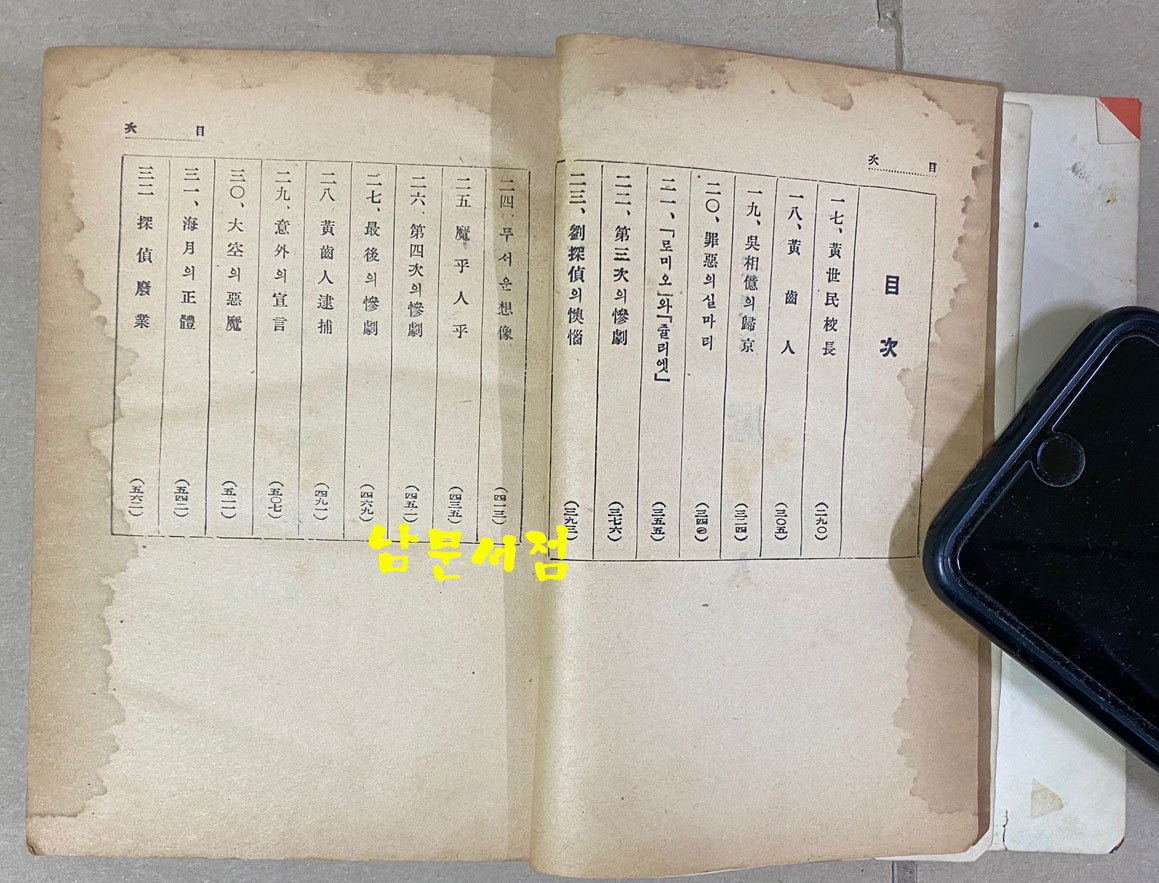 目 次
目 次
一七、黃世民校長 (二九〇)
一八、黃齒人 (三〇五)
一九、吳相億의歸京 (三二四)
二〇、罪惡의실마리
二一、「로미오」와「쥴리엣」 (三五五)
二二、第三次의慘劇 (三七六)
二三、劉探偵의懊惱 (三九三)
目 次
二四、무서운想像 (四一三)
二五 魔乎人乎 (四三五)
二六、第四次의慘劇 (四五二)
二七、最後의慘劇 (四六九)
二八 黃齒人逮捕 (四九一)
二九、意外의宣言 (五〇七)
三〇、大空의惡魔
三一、海月의正體
三二 探偵廢業
남문서점